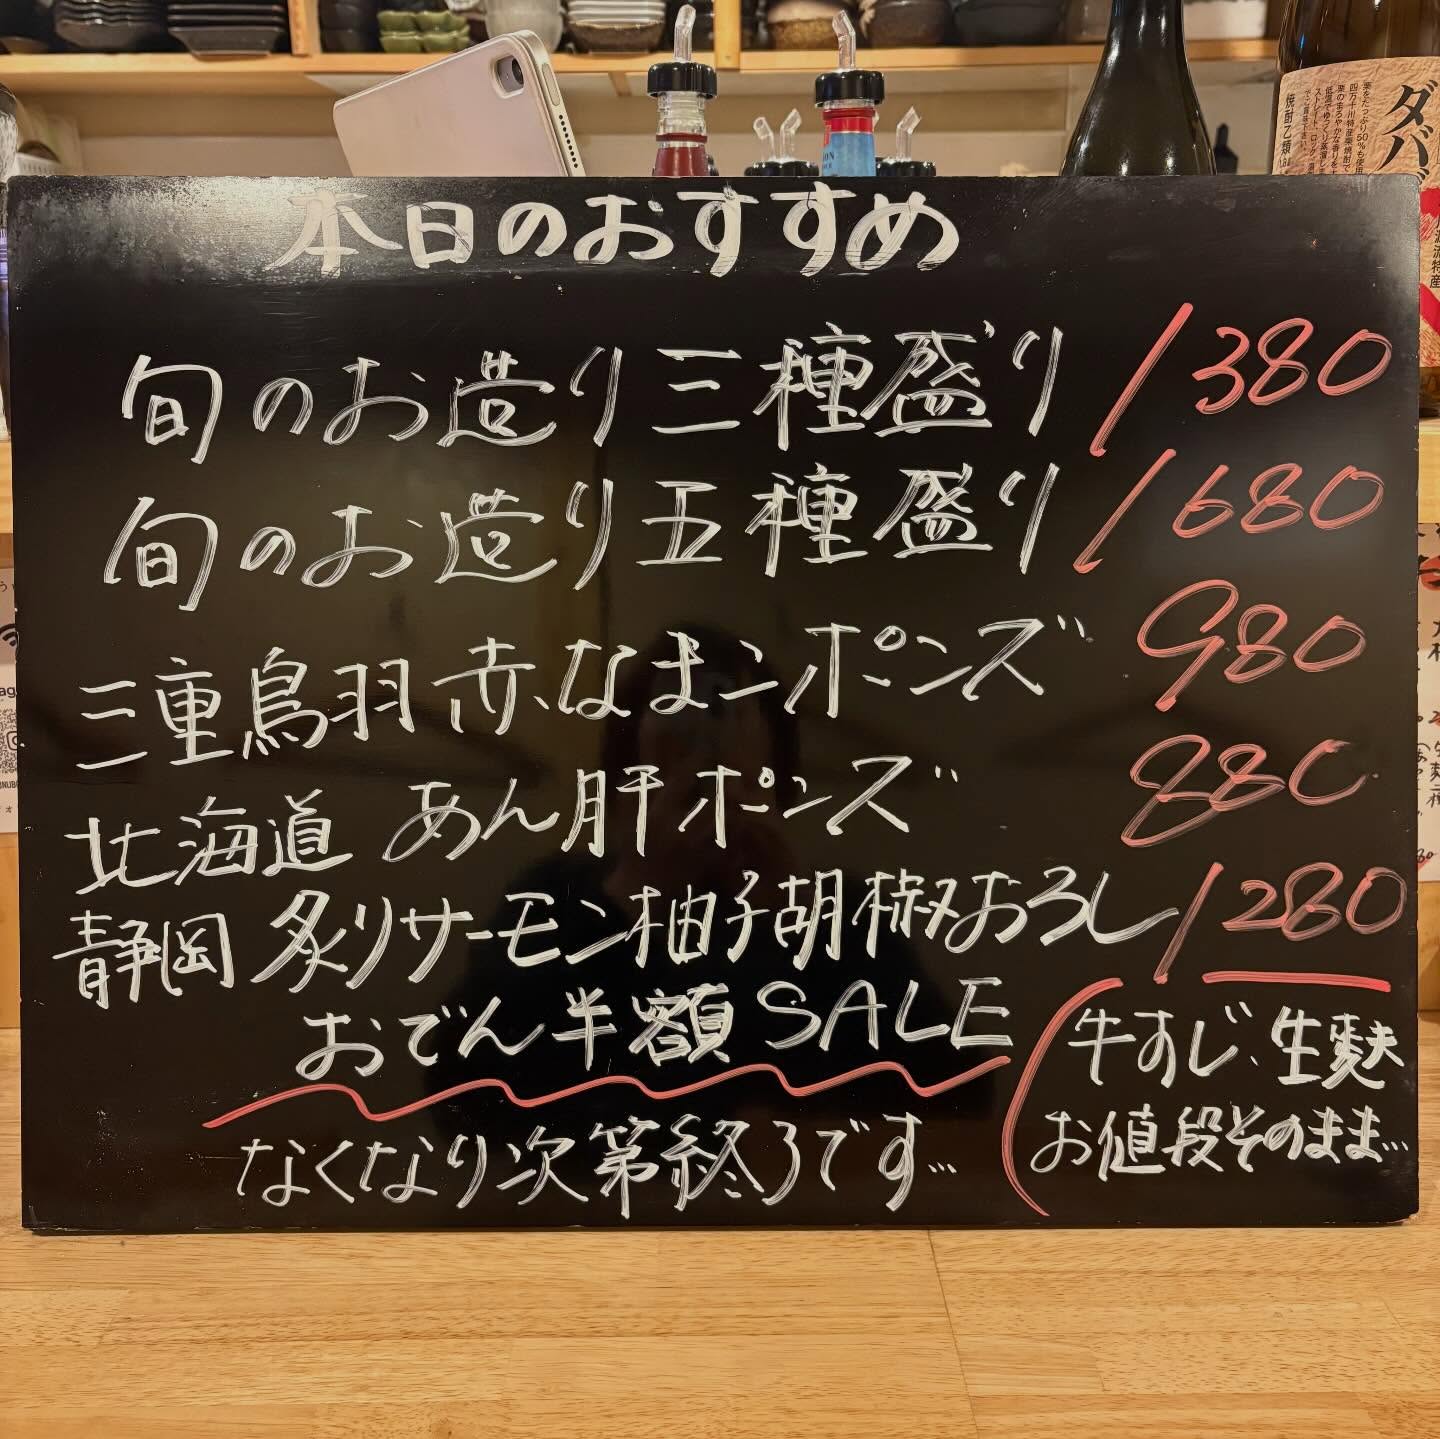 本日のおすすめ
旬のお造り三種盛り 1380
旬のお造り五種盛り 1680
三重鳥羽赤なまこポンズ 980
北海道 あん肝ポンズ 880
静岡 炙りサーモン柚子胡椒おろし 1280
おでん半額SALE
なくなり次第終了です…
牛すじ、生麩
お値段そのまま…
ダバダ
焼酎乙類